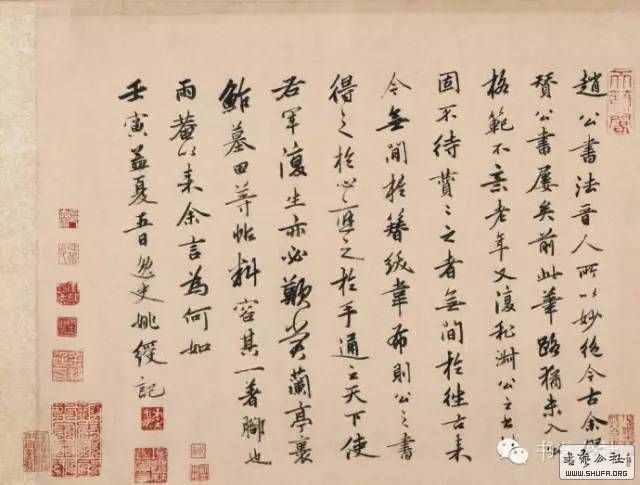 趙公書法晉人所以妙絶今古余
賛公書屢矣前此筆路猶未入
格範不意老年又復公之
固不待賛〻之者無間於徃古来
今無間於簪紱韋布則公之書
得之於心應之於手通之天下使
右軍復生亦必歎賞蘭亭裹
鮓墓田等帖料容其一著腳也
雨菴以来余言為何如
壬寅孟夏五日逸史姚綬記
WWW.SHUFA.ORG